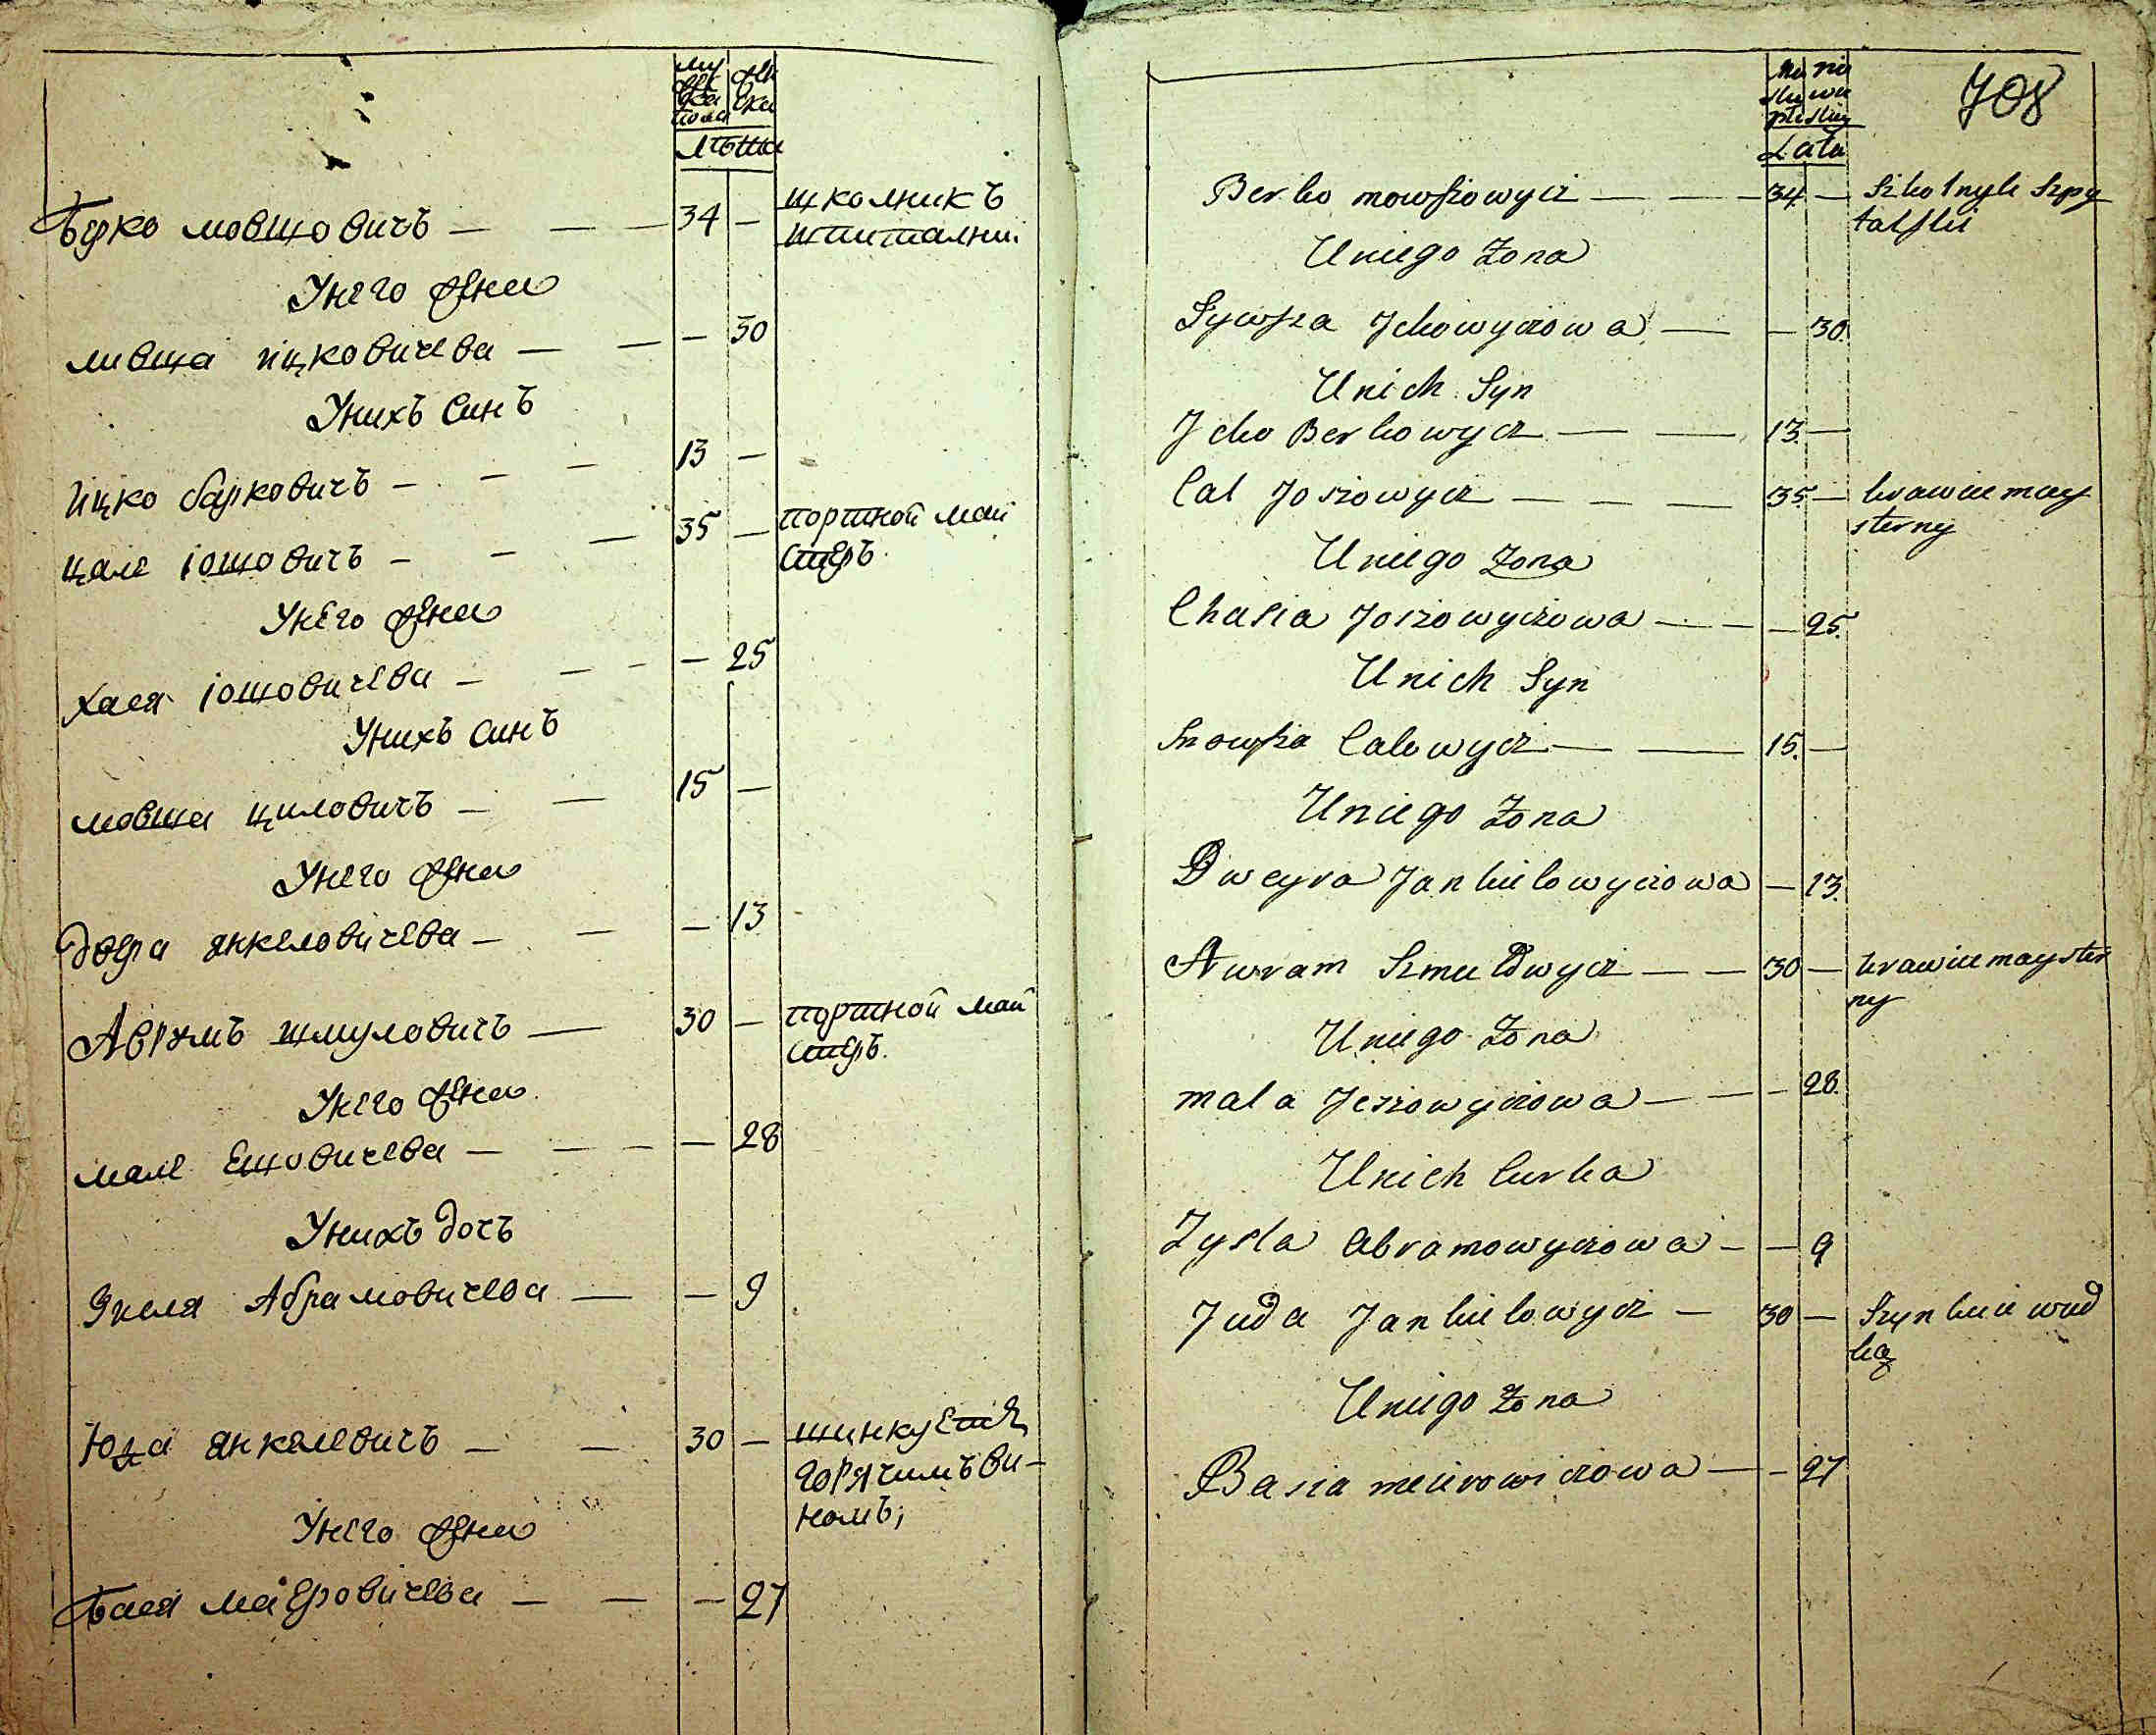 мужеска пола
женска
лѣта
Берко мовшовичъ — — — 34 — школникъ
шпитални
Унего жена
ливша ицковичева — — — 30
Унихъ синъ
ицко бярковичъ — — — 13 —
цале іошовичъ — — — 35 — портной май
стеръ.
Унего жена
хася іошовичева — — — — 25
Унихъ синъ
мовша циловичъ — — 15 —
Унего жена
двера янкеловичева — — — 13
Аврумъ шмуловичъ — 30 — портной май
стеръ.
Унего жена
мале Ешовичева — — — — 28
Унихъ дочъ
Абрамовичева — — 9
Юда янкелевичъ — — 30 — шинкуетъ
горячимъ ви-
номъ;
Унего жена
Бася маеровичева — — — 27
708
Lata
Berko mowszowycz — — — 34 — Szkolnyk Szpy
talski
Uniego Żona
Sywsza Jckowyczowa — — 30.
Unich Syn
Jcko Berkowycz — — 13. —
Cal Joszowycz — — — 35. — krawiec may
sterny
Uniego Żona
Chasia Joszowyczowa — — — 25.
Unich Syn
Calowycz — — 15. —
Uniego Żona
Dweyra Jankielowyczowa — 13.
Awram Szmulowycz — — 30 — krawiec mayster
ny
Uniego Żona
mala Jeszowyczowa — — — 28.
Unich Curka
Zysla Abramowyczowa — — 9
Juda Jankielowycz — 30 — Szynkuie wud
ką
Uniego Żona
Basia meierowiczowa — — 27